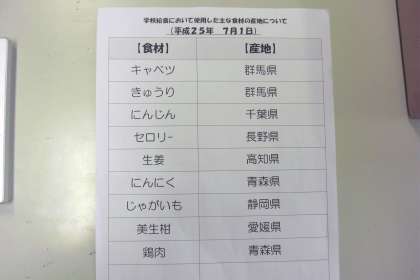 学校給食において使用した主な食材の産地について
（平成２５年　７月１日）
【食材】　【産地】
キャベツ　群馬県
きゅうり　群馬県
にんじん　千葉県
セロリー　長野県
生姜　高知県
にんにく　青森県
じゃがいも　静岡県
美生柑　愛媛県
鶏肉　青森県